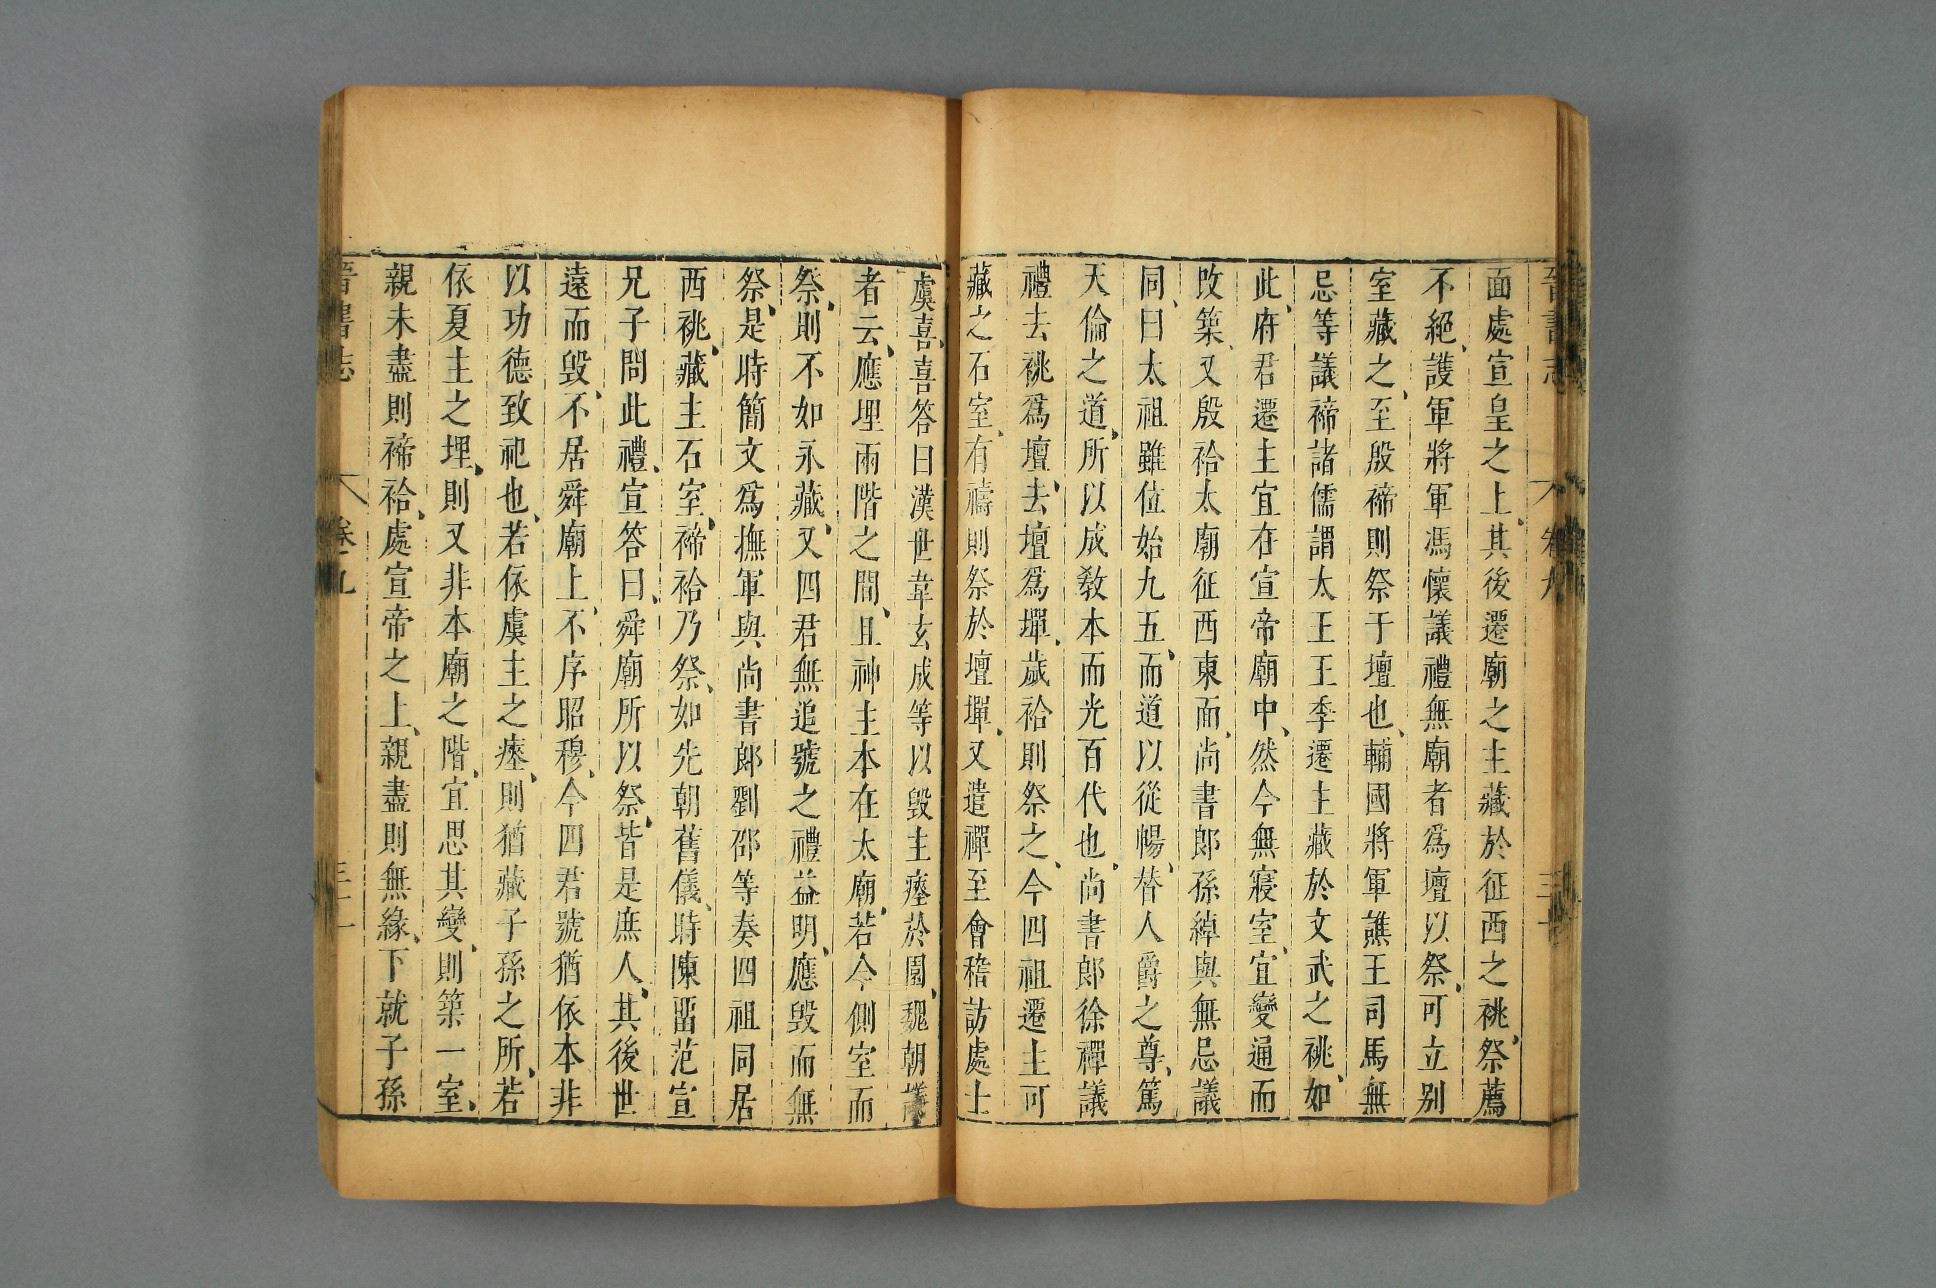 晉書志 卷九 三十
面處宣皇之上、其後遷廟之主藏於征西之祧、祭薦
不絕、護軍將軍馮懷議禮無廟者爲壇以祭、可立別
室藏之、至殷禘則祭于壇也、輔國將軍譙王司馬無
忌等議禘諸儒謂太王王季遷主藏於文武之祧、如
此、府君遷主宜在宣帝廟中、然今無寢室、宜變通而
攺築、又殷祫太廟征西東面、尚書郎孫綽與無忌議
同、曰太祖雖位始九五、而道以從暢、替人爵之尊、篤
天倫之道、所以成敎本而光百代也、尚書郎徐禪議
禮去祧爲壇、去壇爲墠、歲祫則祭之、今四祖遷主可
藏之石室、有禱則祭於壇墠、又遣禪至會稽訪處士
虞喜、喜答曰漢世韋玄成等以毀主瘞於園、魏朝議
者云、應埋兩階之間、且神主本在太廟、若今側室而
祭、則不如永藏、又四君無追號之禮益明、應毀而無
祭、是時簡文爲撫軍與尚書郎劉邵等奏四祖同居
西祧、藏主石室、禘祫乃祭、如先朝舊儀、時陳留范宣
兄子問此禮、宣答曰、舜廟所以祭、皆是庶人、其後世
遠而毀、不居舜廟上、不序昭穆、今四君號猶依本非
以功德致祀也、若依虞主之瘞、則猶藏子孫之所、若
依夏主之埋、則又非本廟之階、宜思其變、則築一室、
親未盡則禘祫、處宣帝之上、親盡則無緣、下就子孫
晉書志 卷九 三十一